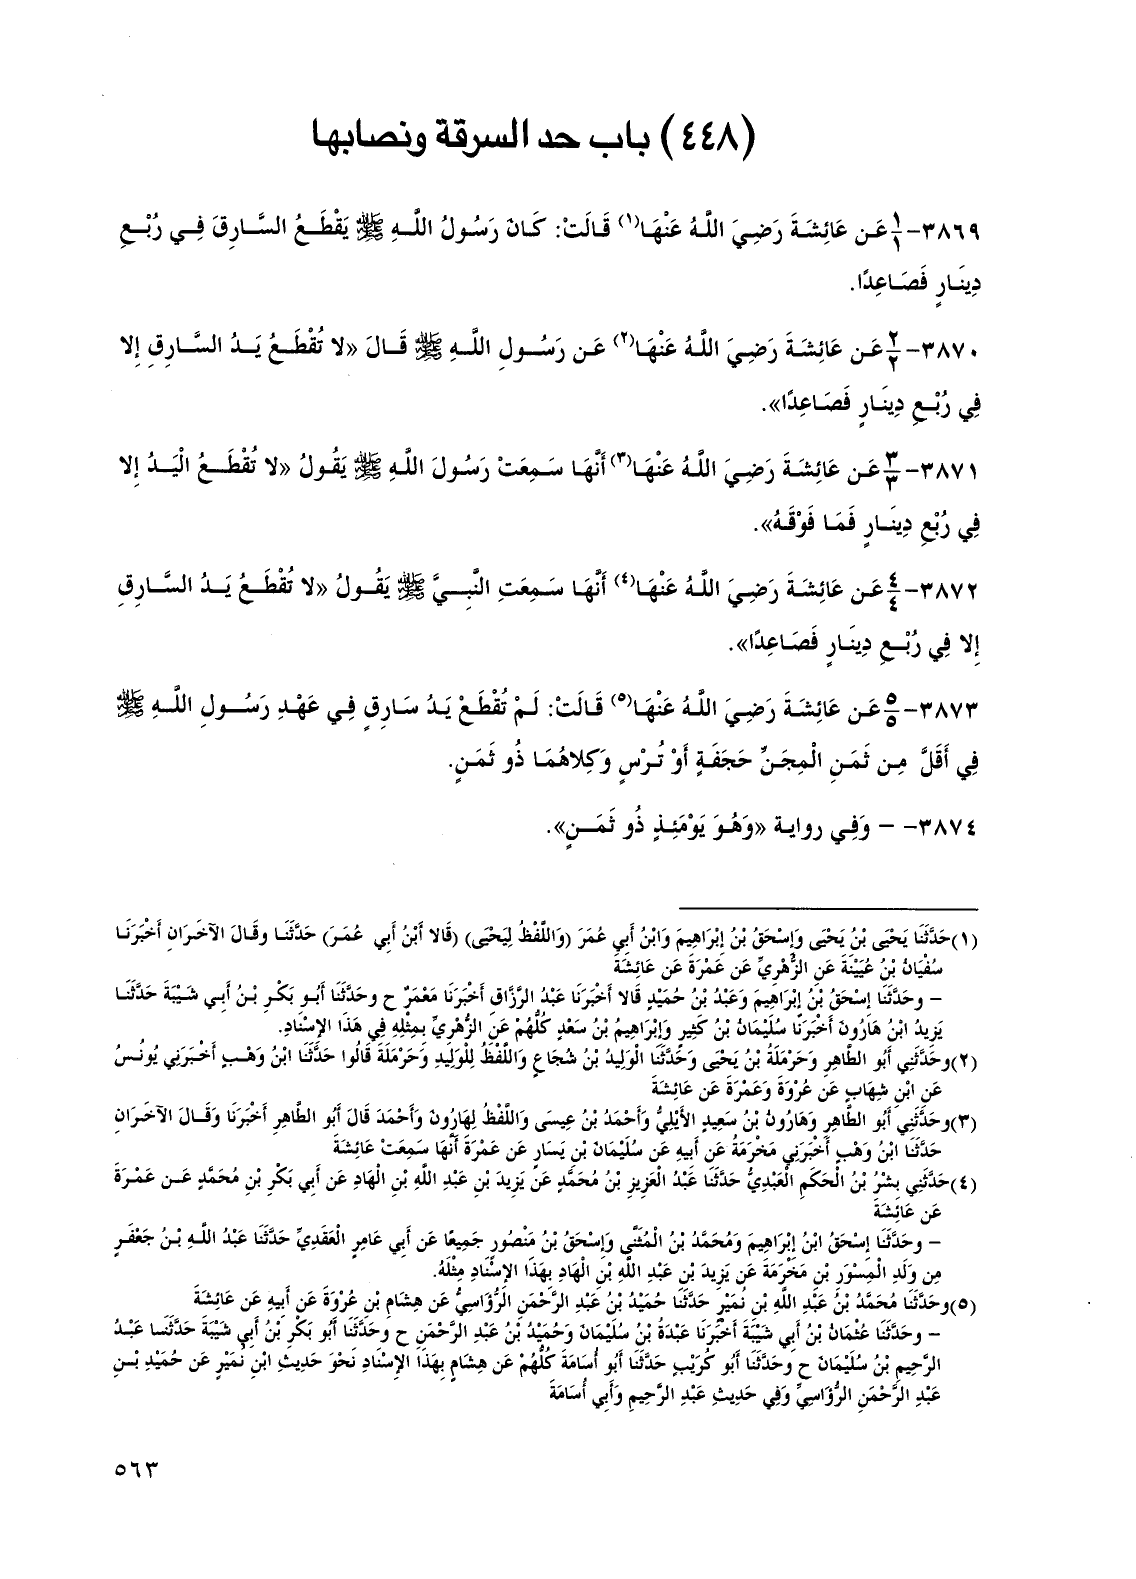 (٤٤٨) باب حد السرقة ونصابها
٣٨٦٩-١/١ عَن عَائِشَةَ رَضِيَ اللَّهُ عَنْهَا(١) قَالَتْ: كَانَ رَسُولُ اللَّهِ ﷺ يَقْطَعُ السَّارِقَ فِي رُبْعِ
دِينَارٍ فَصَاعِدًا.
٣٨٧٠-٢/٢ عَن عَائِشَةَ رَضِيَ اللَّهُ عَنْهَا(٢) عَن رَسُولِ اللَّهِ ﷺ قَالَ «لا تُقْطَعُ يَدُ السَّارِقِ إِلا
فِي رُبْعِ دِينَارٍ فَصَاعِدًا».
٣٨٧١-٣/٣ عَن عَائِشَةَ رَضِيَ اللَّهُ عَنْهَا(٣) أَنَّهَا سَمِعَتْ رَسُولَ اللَّهِ ﷺ يَقُولُ «لا تُقْطَعُ الْيَدُ إِلا
فِي رُبْعِ دِينَارٍ فَمَا فَوْقَهُ».
٣٨٧٢-٤/٤ عَن عَائِشَةَ رَضِيَ اللَّهُ عَنْهَا(٤) أَنَّهَا سَمِعَتِ النَّبِيَّ ﷺ يَقُولُ «لا تُقْطَعُ يَدُ السَّارِقِ
إِلا فِي رُبْعِ دِينَارٍ فَصَاعِدًا».
٣٨٧٣-٥/٥ عَن عَائِشَةَ رَضِيَ اللَّهُ عَنْهَا(٥) قَالَتْ: لَمْ تُقْطَعْ يَدُ سَارِقٍ فِي عَهْدِ رَسُولِ اللَّهِ ﷺ
فِي أَقَلَّ مِن ثَمَنِ الْمِجَنِّ حَجَفَةٍ أَوْ تُرْسٍ وَكِلاهُمَا ذُو ثَمَنٍ.
٣٨٧٤- – وَفِي رواية «وَهُوَ يَوْمَئِذٍ ذُو ثَمَنٍ».
(١)حَدَّثَنَا يَحْيَى بْنُ يَحْيَى وَإِسْحَقُ بْنُ إِبْرَاهِيمَ وَابْنُ أَبِي عُمَرَ (وَاللَّفْظُ لِيَحْيَى) (قَالا ابْنُ أَبِي عُمَرَ) حَدَّثَنَا وقَالَ الآخَرَانِ أَخْبَرَنَا
سُفْيَانُ بْنُ عُيَيْنَةَ عَنِ الزُّهْرِيِّ عَن عَمْرَةَ عَن عَائِشَةَ
– وحَدَّثَنَا إِسْحَقُ بْنُ إِبْرَاهِيمَ وَعَبْدُ بْنُ حُمَيْدٍ قَالا أَخْبَرَنَا عَبْدُ الرَّزَّاقِ أَخْبَرَنَا مَعْمَرٌ ح وحَدَّثَنَا أَبُو بَكْرِ بْنُ أَبِي شَيْبَةَ حَدَّثَنَا
يَزِيدُ ابْنُ هَارُونَ أَخْبَرَنَا سُلَيْمَانُ بْنُ كَثِيرٍ وَإِبْرَاهِيمُ بْنُ سَعْدٍ كُلُّهُمْ عَنِ الزُّهْرِيِّ بِمِثْلِهِ فِي هَذَا الإِسْنَادِ.
(٢)وحَدَّثَنِي أَبُو الطَّاهِرِ وَحَرْمَلَةُ بْنُ يَحْيَى وحَدَّثَنَا الْوَلِيدُ بْنُ شُجَاعٍ وَاللَّفْظُ لِلْوَلِيدِ وَحَرْمَلَةَ قَالُوا حَدَّثَنَا ابْنُ وَهْبٍ أَخْبَرَنِي يُونُسُ
عَنِ ابْنِ شِهَابٍ عَن عُرْوَةَ وَعَمْرَةَ عَن عَائِشَةَ
(٣)وحَدَّثَنِي أَبُو الطَّاهِرِ وَهَارُونُ بْنُ سَعِيدٍ الأَيْلِيُّ وَأَحْمَدُ بْنُ عِيسَى وَاللَّفْظُ لِهَارُونَ وَأَحْمَدَ قَالَ أَبُو الطَّاهِرِ أَخْبَرَنَا وَقَالَ الآخَرَانِ
حَدَّثَنَا ابْنُ وَهْبٍ أَخْبَرَنِي مَخْرَمَةُ عَن أَبِيهِ عَن سُلَيْمَانَ بْنِ يَسَارٍ عَن عَمْرَةَ أَنَّهَا سَمِعَتْ عَائِشَةَ
(٤)حَدَّثَنِي بِشْرُ بْنُ الْحَكَمِ الْعَبْدِيُّ حَدَّثَنَا عَبْدُ الْعَزِيزِ بْنُ مُحَمَّدٍ عَن يَزِيدَ بْنِ عَبْدِ اللَّهِ بْنِ الْهَادِ عَن أَبِي بَكْرِ بْنِ مُحَمَّدٍ عَن عَمْرَةَ
عَن عَائِشَةَ
– وحَدَّثَنَا إِسْحَقُ ابْنُ إِبْرَاهِيمَ وَمُحَمَّدُ بْنُ الْمُثَنَّى وَإِسْحَقُ بْنُ مَنْصُورٍ جَمِيعًا عَن أَبِي عَامِرٍ الْعَقَدِيِّ حَدَّثَنَا عَبْدُ اللَّهِ بْنُ جَعْفَرٍ
مِن وَلَدِ الْمِسْوَرِ بْنِ مَخْرَمَةَ عَن يَزِيدَ بْنِ عَبْدِ اللَّهِ بْنِ الْهَادِ بِهَذَا الإِسْنَادِ مِثْلَهُ.
(٥)وحَدَّثَنَا مُحَمَّدُ بْنُ عَبْدِ اللَّهِ بْنِ نُمَيْرٍ حَدَّثَنَا حُمَيْدُ بْنُ عَبْدِ الرَّحْمَنِ الرُّؤَاسِيُّ عَن هِشَامِ بْنِ عُرْوَةَ عَن أَبِيهِ عَن عَائِشَةَ
– وحَدَّثَنَا عُثْمَانُ بْنُ أَبِي شَيْبَةَ أَخْبَرَنَا عَبْدَةُ بْنُ سُلَيْمَانَ وَحُمَيْدُ بْنُ عَبْدِ الرَّحْمَنِ ح وحَدَّثَنَا أَبُو بَكْرِ بْنُ أَبِي شَيْبَةَ حَدَّثَنَا عَبْدُ
الرَّحِيمِ بْنُ سُلَيْمَانَ ح وحَدَّثَنَا أَبُو كُرَيْبٍ حَدَّثَنَا أَبُو أُسَامَةَ كُلُّهُمْ عَن هِشَامٍ بِهَذَا الإِسْنَادِ نَحْوَ حَدِيثِ ابْنِ نُمَيْرٍ عَن حُمَيْدِ بْنِ
عَبْدِ الرَّحْمَنِ الرُّؤَاسِيِّ وَفِي حَدِيثِ عَبْدِ الرَّحِيمِ وَأَبِي أُسَامَةَ
٥٦٣